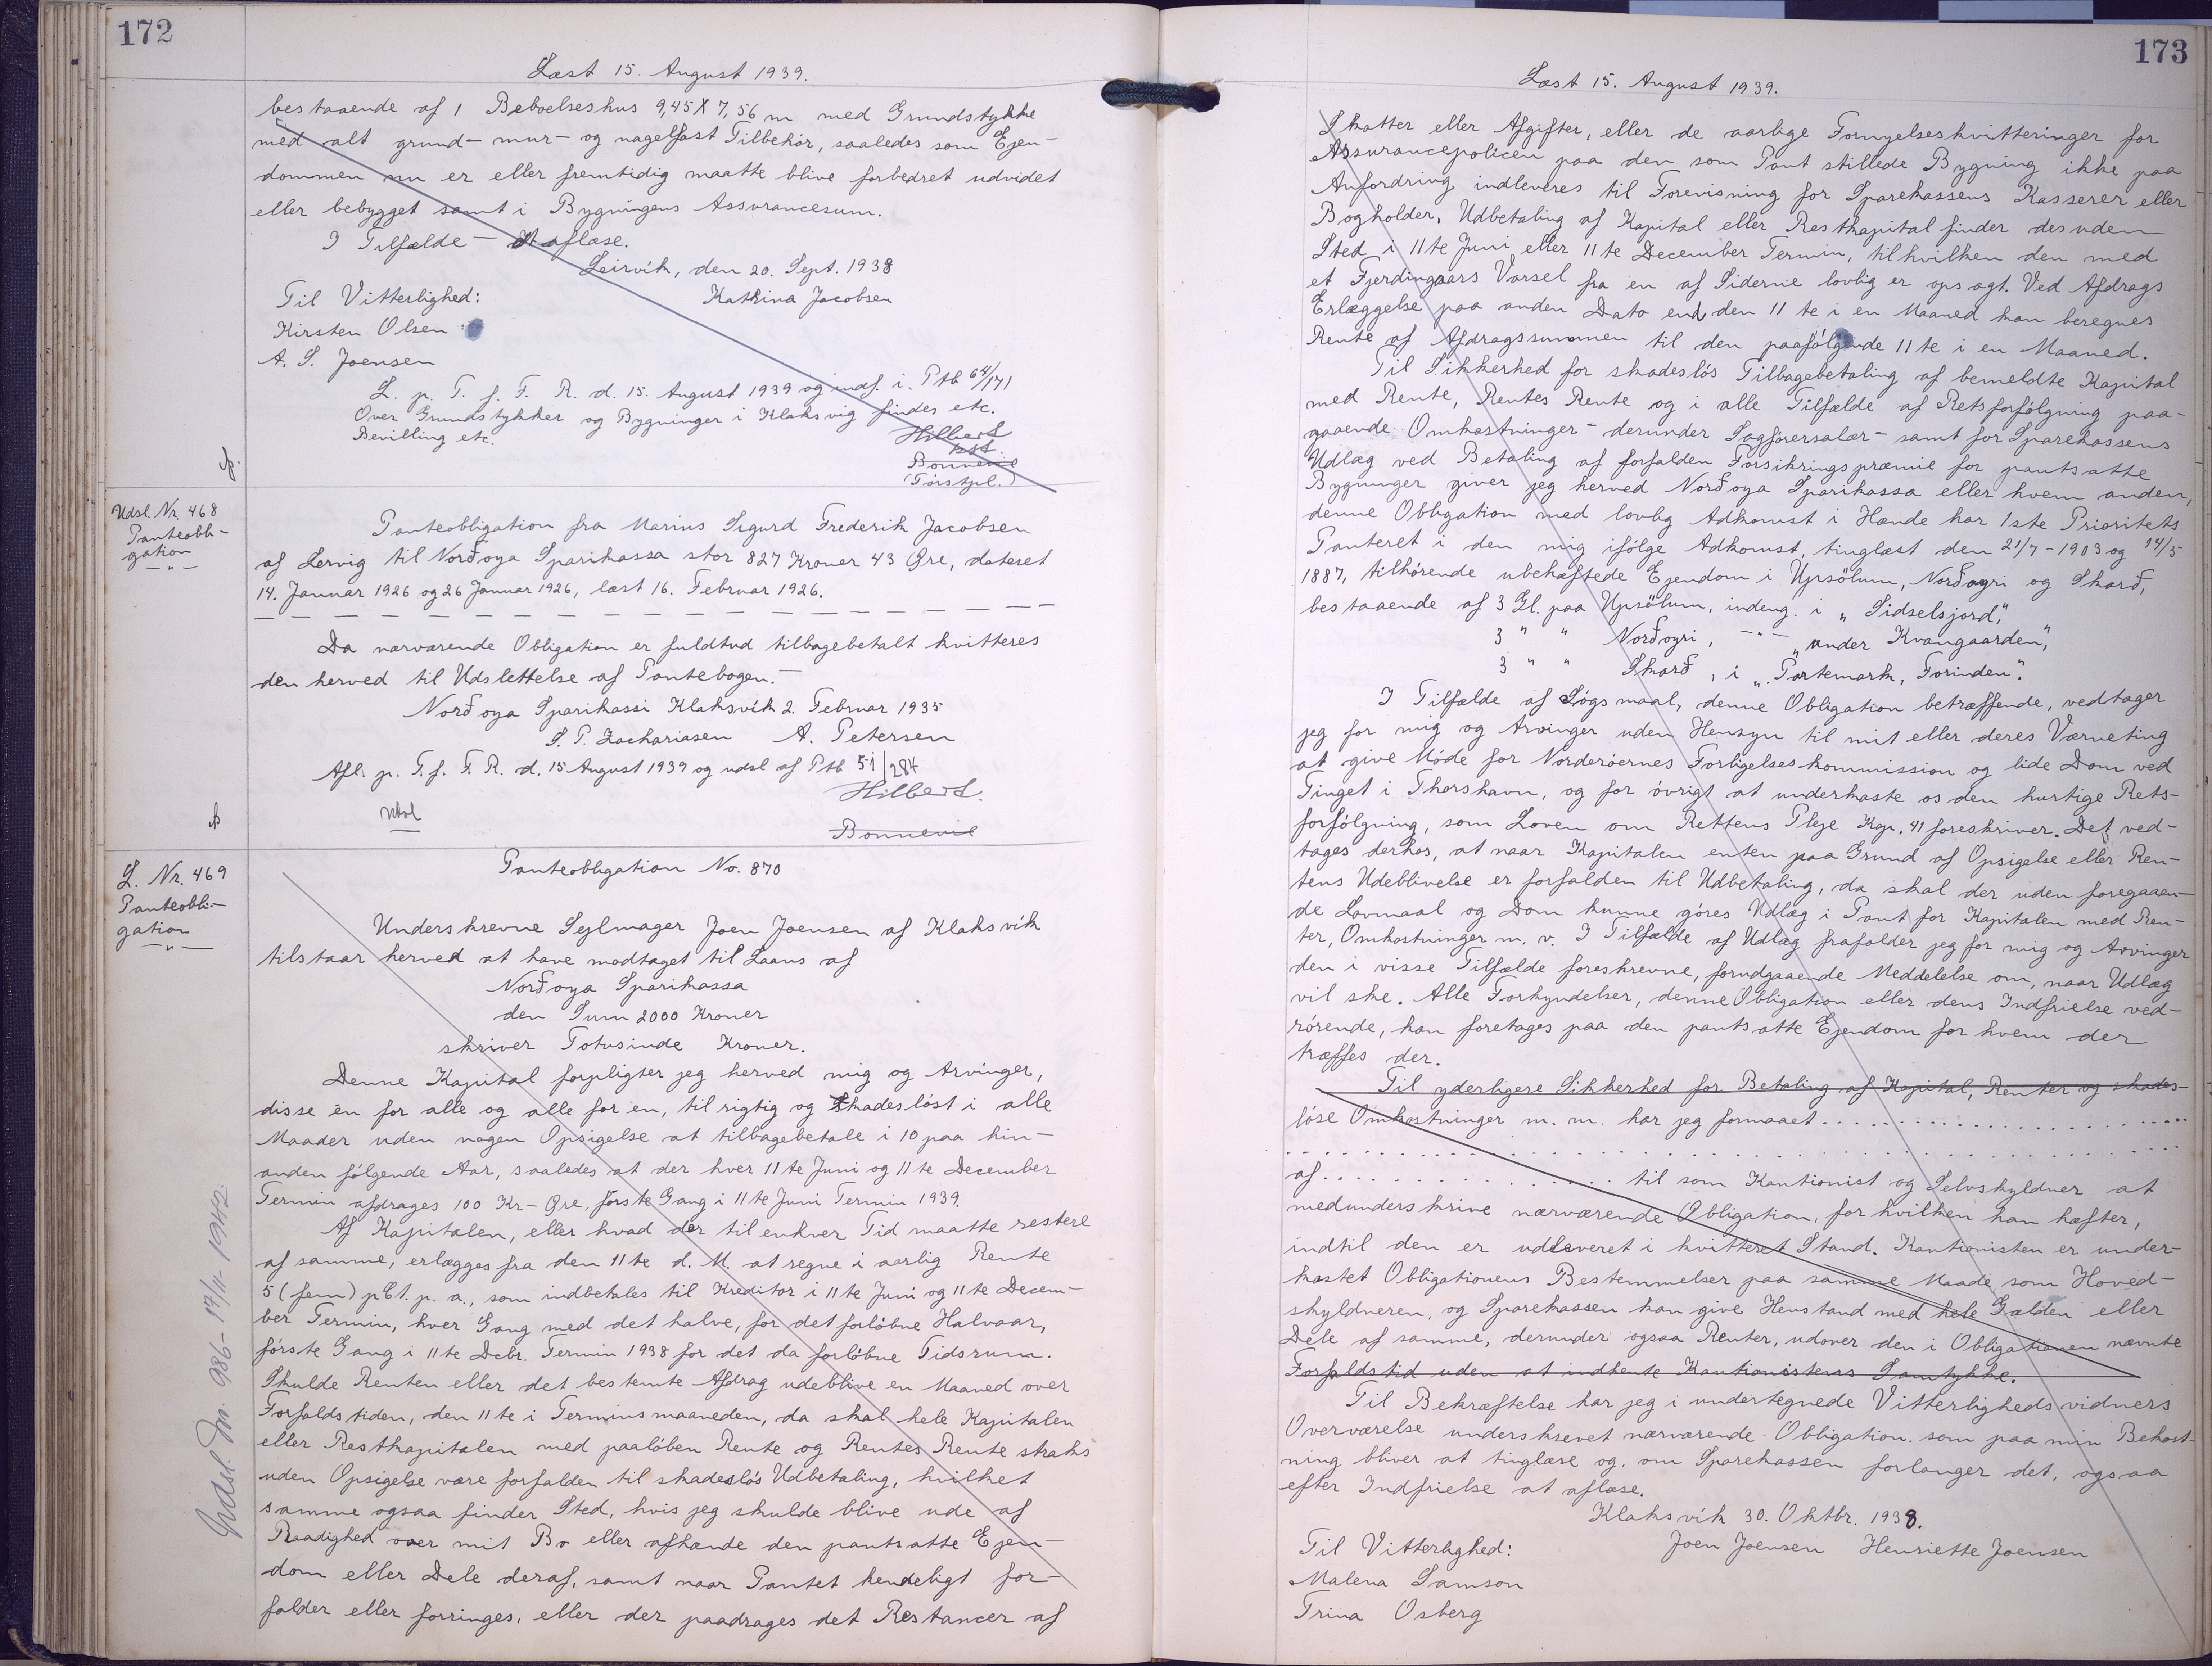 172
Læst 15. August 1939.
bestaaende af 1 Beboelseshus 9,45 X 7,56 m med Grundstykke
med alt grund- mur- og nagelfast Tilbehör, saaledes som Ejen-
dommen nu er eller fremtidig maatte blive forbedret udvidet
eller bebygget samt i Bygningens Assurancesum.
I Tilfælde — At aflæse.
Leirvík, den 20. Sept. 1938
Til Vitterlighed:
Katrina Jacobsen
Kirsten Olsen
A. S. Joensen
L. p. T. f. F. R. d. 15. August 1939 og indf. i. Ptb 64/171
Over Grundstykker og Bygninger i Klaksvig findes etc.
Bevilling etc.
Hilbert
kst.
Bonnevie
(Tinstpl.)
Udsl. Nr. 468
Panteobli-
gation
— " —
Panteobligation fra Marius Sigurd Frederik Jacobsen
af Lervig til Norðoya Sparikassa stor 827 Kroner 43 Øre, dateret
14. Januar 1926 og 26 Januar 1926, læst 16. Februar 1926.
Da nærværende Obligation er fuldtud tilbagebetalt kvitteres
den herved til Udslettelse af Pantebogen.—
Norðoya Sparikassi Klaksvík 2. Februar 1935
S. P. Zachariasen A. Petersen
Afl. p. T. f. F. R. d. 15 August 1939 og udsl af Ptb 51/284
Hilbert.
Udsl
Bonnevie
L. Nr. 469
Panteobli-
gation
— " —
Panteobligation No. 870
Underskrevne Sejlmager Joen Joensen af Klaksvík
tilstaar herved at have modtaget til Laans af
Norðoya Sparikassa
den Sum 2000 Kroner
skriver Totusinde Kroner.
Denne Kapital forpligter jeg herved mig og Arvinger,
disse én for alle og alle for én, til rigtig og skadeslöst i alle
Maader uden nogen Opsigelse at tilbagebetale i 10 paa hin-
anden fölgende Aar, saaledes at der hver 11te Juni og 11te December
Termin afdrages 100 Kr— Øre, förste Gang i 11te Juni Termin 1939.
Af Kapitalen, eller hvad der til enhver Tid maatte restere
af samme, erlægges fra den 11te d. M. at regne i aarlig Rente
5 (fem) pCt. p. a., som indbetales til Kreditor i 11te Juni og 11te Decem-
ber Termin, hver Gang med det halve, for det forlöbne Halvaar,
förste Gang i 11te Decbr. Termin 1938 for det da forlöbne Tidsrum.
Skulde Renten eller det bestemte Afdrag udeblive en Maaned over
Forfaldstiden, den 11te i Terminsmaaneden, da skal hele Kapitalen
eller Restkapitalen med paalöben Rente og Rentes Rente straks
uden Opsigelse være forfalden til skadeslös Udbetaling, hvilket
samme ogsaa finder Sted, hvis jeg skulde blive ude af
Raadighed over mit Bo eller afhænde den pantsatte Ejen-
dom eller Dele deraf, samt naar Pantet hendeligt for-
falder eller forringes, eller der paadrages det Restancer af
Udsl. Dnr. 986 - 17/11 1942.
173
Læst 15. August 1939.
Skatter eller Afgifter, eller de aarlige Fornyelseskvitteringer for
Assurancepolicen paa den som Pant stillede Bygning ikke paa
Anfordring indleveres til Forevisning for Sparekassens Kasserer eller
Bogholder. Udbetaling af Kapital eller Restkapital finder desuden
Sted i 11te Juni eller 11te December Termin, til hvilken den med
et Fjerdingaars Varsel fra en af Siderne lovlig er opsagt. Ved Afdrags
Erlæggelse paa anden Dato end den 11te i en Maaned kan beregnes
Rente af Afdragssummen til den paafölgende 11te i en Maaned.
Til Sikkerhed for skadeslös Tilbagebetaling af bemeldte Kapital
med Rente, Rentes Rente og i alle Tilfælde af Retsforfölgning paa-
gaaende Omkostninger - derunder Sagförersalær - samt for Sparekassens
Udlæg ved Betaling af forfalden Forsikringspræmie for pantsatte
Bygninger giver jeg herved Norðoya Sparikassa eller hvem anden,
denne Obligation med lovlig Adkomst i Hænde har 1ste Prioritets
Panteret i den mig ifölge Adkomst, tinglæst den 21/7 - 1903 og 14/5
1887, tilhörende ubehæftede Ejendom i Upsölum, Norðoyri og Skarð,
bestaaende af 3 Gl. paa Upsölum, indeng. i „Sidselsjord,"
3 " " Norðoyri, —"— „under Kvangaarden",
3 " " Skarð, i „Partemark, Forinden".
I Tilfælde af Sögsmaal, denne Obligation betræffende, vedtager
jeg for mig og Arvinger uden Hensyn til mit eller deres Værneting
at give Möde for Norderöernes Forligelseskommission og lide Dom ved
Tinget i Thorshavn, og for övrigt at underkaste os den hurtige Rets-
forfölgning, som Loven om Rettens Pleje Kap. 41 foreskriver. Det ved-
tages derhos, at naar Kapitalen enten paa Grund af Opsigelse eller Ren-
tens Udeblivelse er forfalden til Udbetaling, da skal der uden foregaaen-
de Lovmaal og Dom kunne göres Udlæg i Pant for Kapitalen med Ren-
ter, Omkostninger m. v. I Tilfælde af Udlæg frafalder jeg for mig og Arvinger
den i visse Tilfælde foreskrevne, forudgaaende Meddelelse om, naar Udlæg
vil ske. Alle Forkyndelser, denne Obligation eller dens Indfrielse ved-
rörende, kan foretages paa den pantsatte Ejendom for hvem der
træffes der.
Til yderligere Sikkerhed for Betaling af Kapital, Renter og skades-
löse Omkostninger m. m. har jeg formaaet . . . . . . . . . .
. . . . . . . . . . . . . . . . . . . .
af . . . . . . . . . . til som Kautionist og Selvskyldner at
medunderskrive nærværende Obligation, for hvilken han hæfter,
indtil den er udleveret i kvitteret Stand. Kautionisten er under-
kastet Obligationens Bestemmelser paa samme Maade som Hoved-
skyldneren, og Sparekassen kan give Henstand med hele Gælden eller
Dele af samme, derunder ogsaa Renter, udover den i Obligationen nævnte
Forfaldstid uden at indhente Kautionistens Samtykke.
Til Bekræftelse har jeg i undertegnede Vitterlighedsvidners
Overværelse underskrevet nærværende Obligation, som paa min Bekost-
ning bliver at tinglæse og, om Sparekassen forlanger det, ogsaa
efter Indfrielse at aflæse.
Klaksvík 30. Oktbr. 1938.
Til Vitterlighed:
Joen Joensen Henriette Joensen
Malena Samson
Trina Osberg